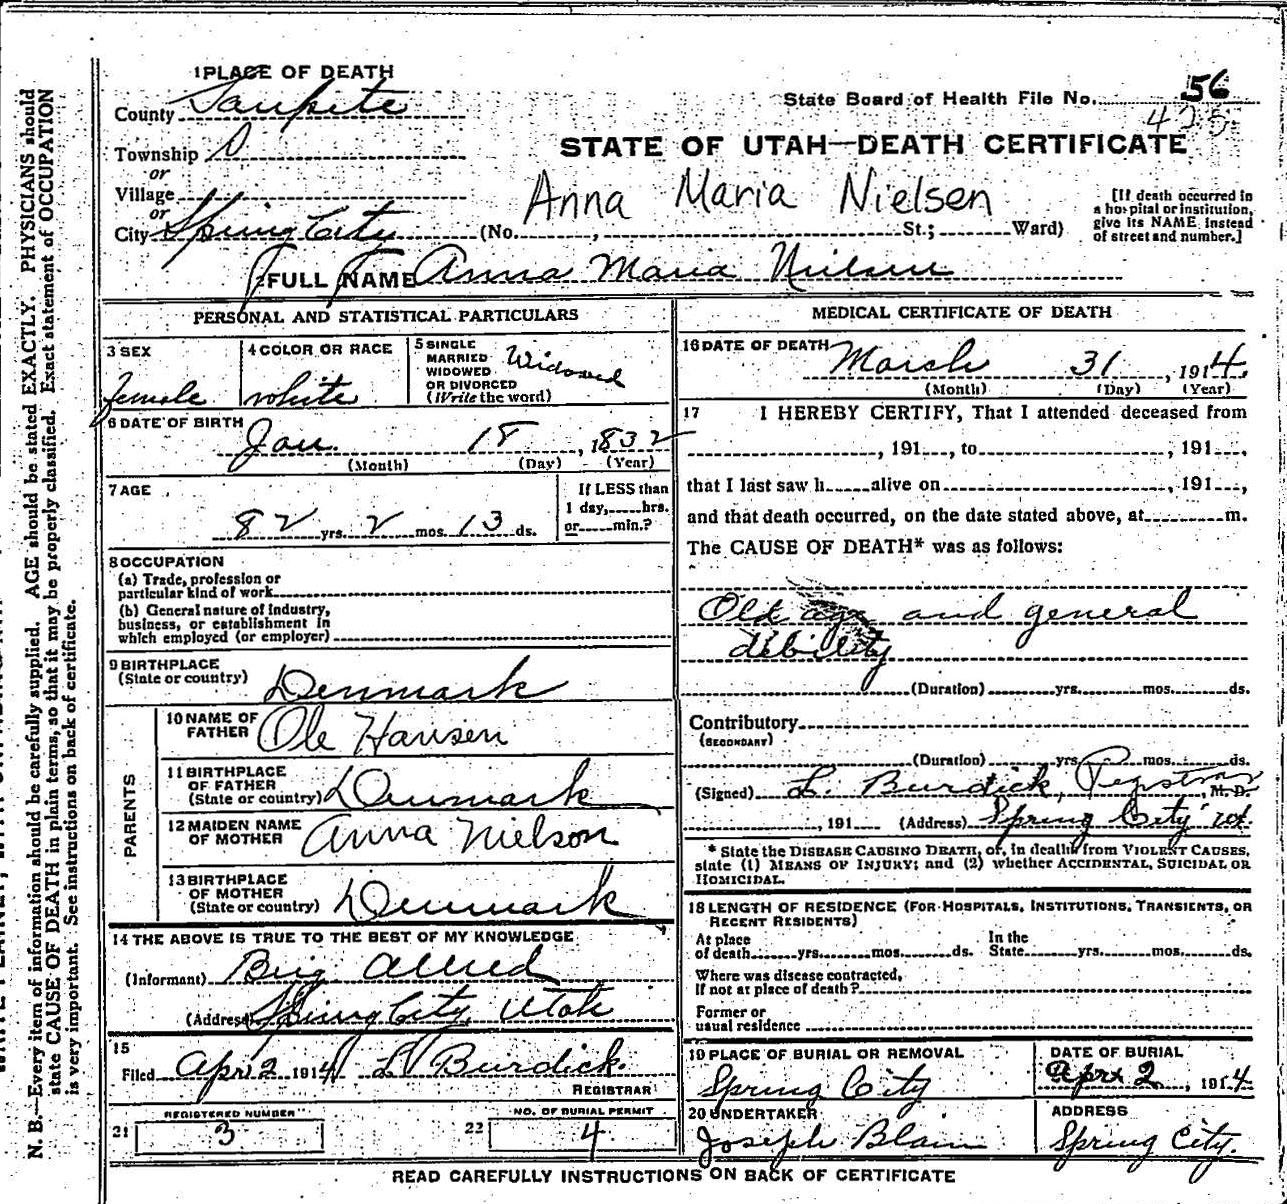 N. B.—Every item of information should be carefully supplied. AGE should be stated EXACTLY. PHYSICIANS should
state CAUSE OF DEATH in plain terms, so that it may be properly classified. Exact statement of OCCUPATION
is very important. See instructions on back of certificate.
1 PLACE OF DEATH
County Sanpete
State Board of Health File No. 56
Township
or
Village
or
City Spring City
STATE OF UTAH—DEATH CERTIFICATE
Anna Maria Nielsen
(No. , St.; Ward)
[If death occurred in
a hospital or institution,
give its NAME instead
of street and number.]
2 FULL NAME Anna Maria Nielsen
PERSONAL AND STATISTICAL PARTICULARS
3 SEX
female
4 COLOR OR RACE
white
5 SINGLE
MARRIED
WIDOWED
OR DIVORCED
(Write the word)
Widowed
6 DATE OF BIRTH
Jan. 18, 1832
(Month) (Day) (Year)
7 AGE
82 yrs. 2 mos. 13 ds.
If LESS than
1 day, hrs.
or min.?
8 OCCUPATION
(a) Trade, profession or
particular kind of work
(b) General nature of industry,
business, or establishment in
which employed (or employer)
9 BIRTHPLACE
(State or country) Denmark
PARENTS
10 NAME OF
FATHER Ole Hansen
11 BIRTHPLACE
OF FATHER
(State or country) Denmark
12 MAIDEN NAME
OF MOTHER Anna Nielson
13 BIRTHPLACE
OF MOTHER
(State or country) Denmark
14 THE ABOVE IS TRUE TO THE BEST OF MY KNOWLEDGE
(Informant) Allred
(Address) Spring City, Utah
15
Filed Apr 2 1914 L Burdick.
REGISTRAR
REGISTERED NUMBER
21 3
NO. OF BURIAL PERMIT
22 4
MEDICAL CERTIFICATE OF DEATH
16 DATE OF DEATH
March 31, 1914.
(Month) (Day) (Year)
17 I HEREBY CERTIFY, That I attended deceased from
, 191 , to , 191 ,
that I last saw h alive on , 191 ,
and that death occurred, on the date stated above, at m.
The CAUSE OF DEATH* was as follows:
Old age and general
debility
(Duration) yrs. mos. ds.
Contributory
(SECONDARY)
(Duration) yrs. mos. ds.
(Signed) L. Burdick, Registrar M. D.
, 191 (Address) Spring City
* State the DISEASE CAUSING DEATH, or, in deaths from VIOLENT CAUSES,
state (1) MEANS OF INJURY; and (2) whether ACCIDENTAL, SUICIDAL OR
HOMICIDAL.
18 LENGTH OF RESIDENCE (FOR HOSPITALS, INSTITUTIONS, TRANSIENTS, OR
RECENT RESIDENTS)
At place
of death yrs. mos. ds.
In the
State yrs. mos. ds.
Where was disease contracted,
If not at place of death?
Former or
usual residence
19 PLACE OF BURIAL OR REMOVAL
Spring City
DATE OF BURIAL
Apr 2, 1914.
20 UNDERTAKER
Joseph Blain
ADDRESS
Spring City.
READ CAREFULLY INSTRUCTIONS ON BACK OF CERTIFICATE